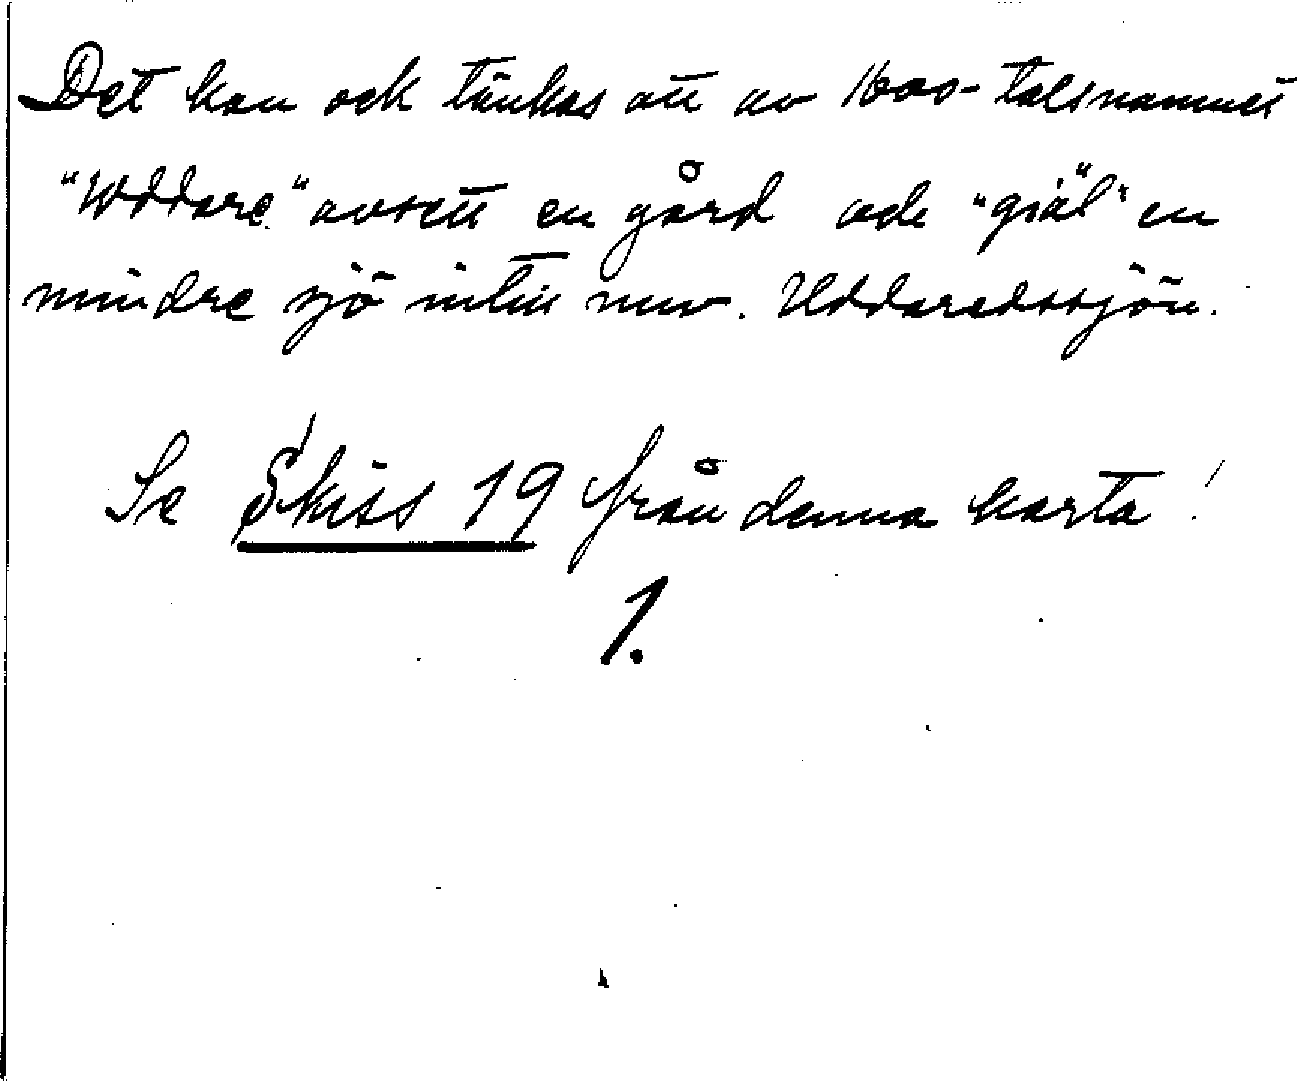 Det kan ock tänkas att av 1600-talsnamnet
"Wddare" avsett en gård och "giäl" en
mindre sjö intill nuv. Uddaredssjön.
Se Skiss 19 från denna karta!
1.